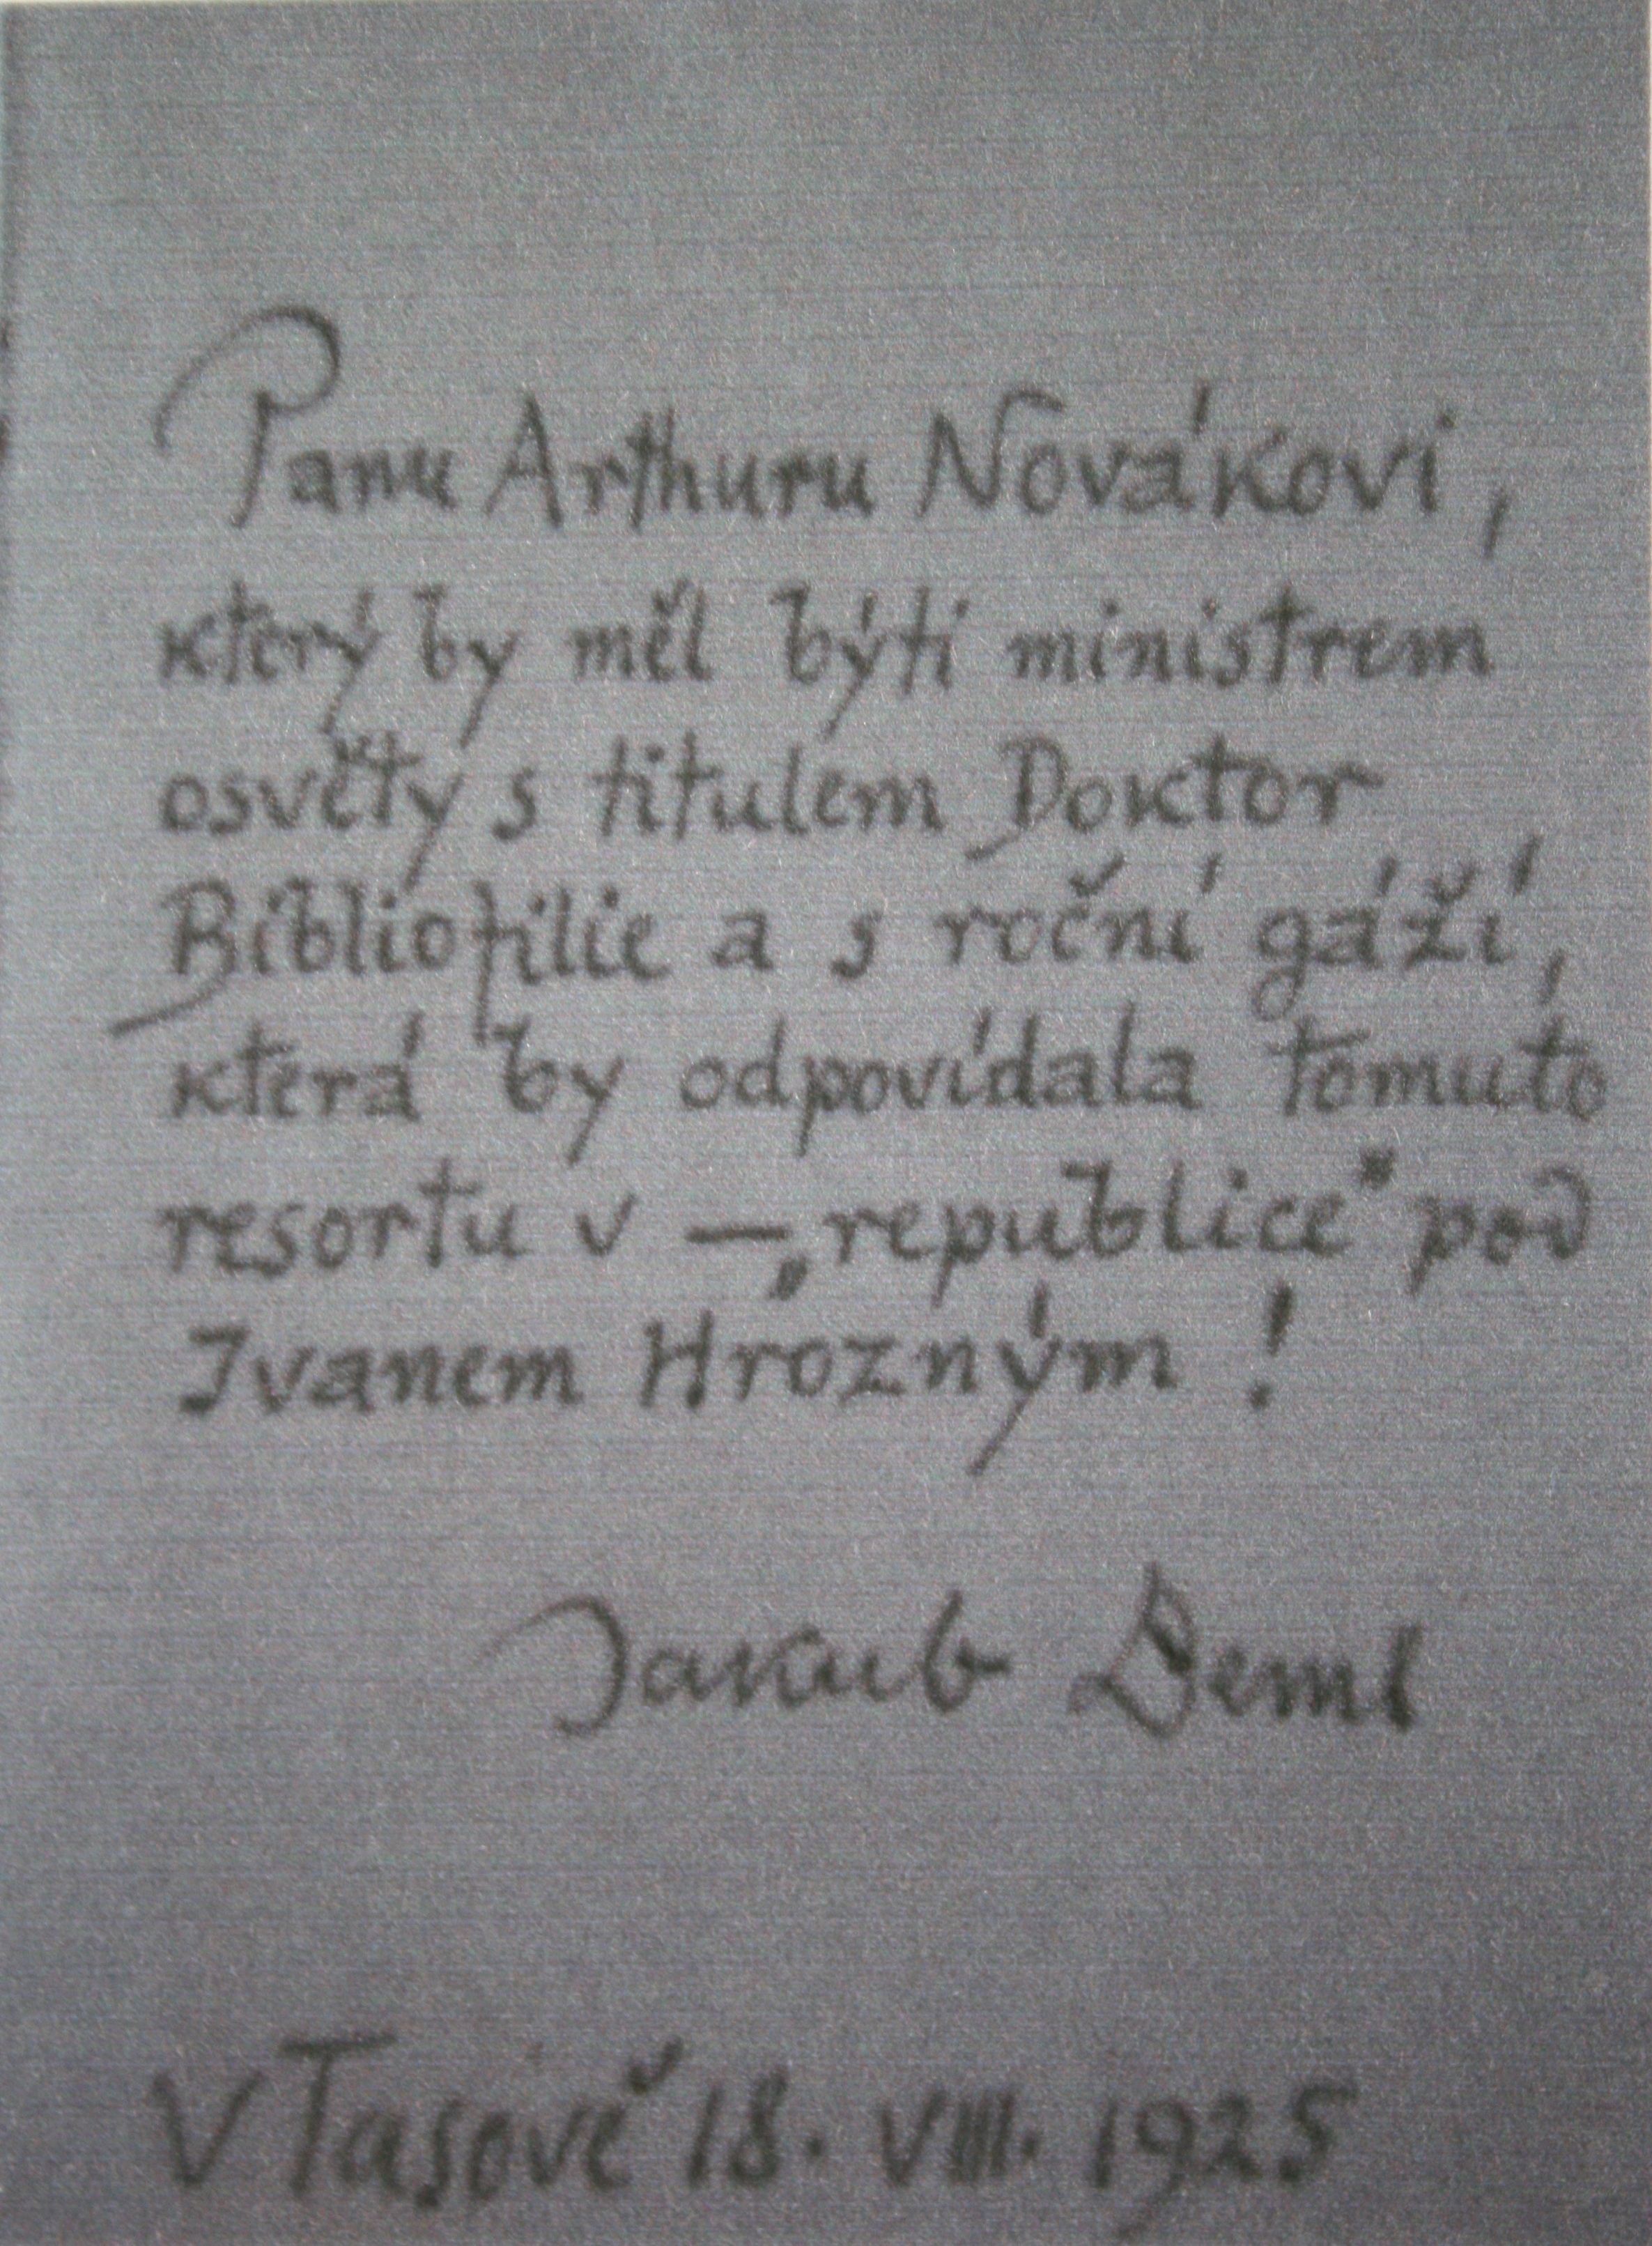 Panu Arthuru Novákovi,
který by měl býti ministrem
osvěty s titulem Doktor
Bibliofilie a s roční gáží,
která by odpovídala tomuto
resortu v — „republice" pod
Ivanem Hrozným!
Jakub Deml
V Tasově 18. VIII. 1925